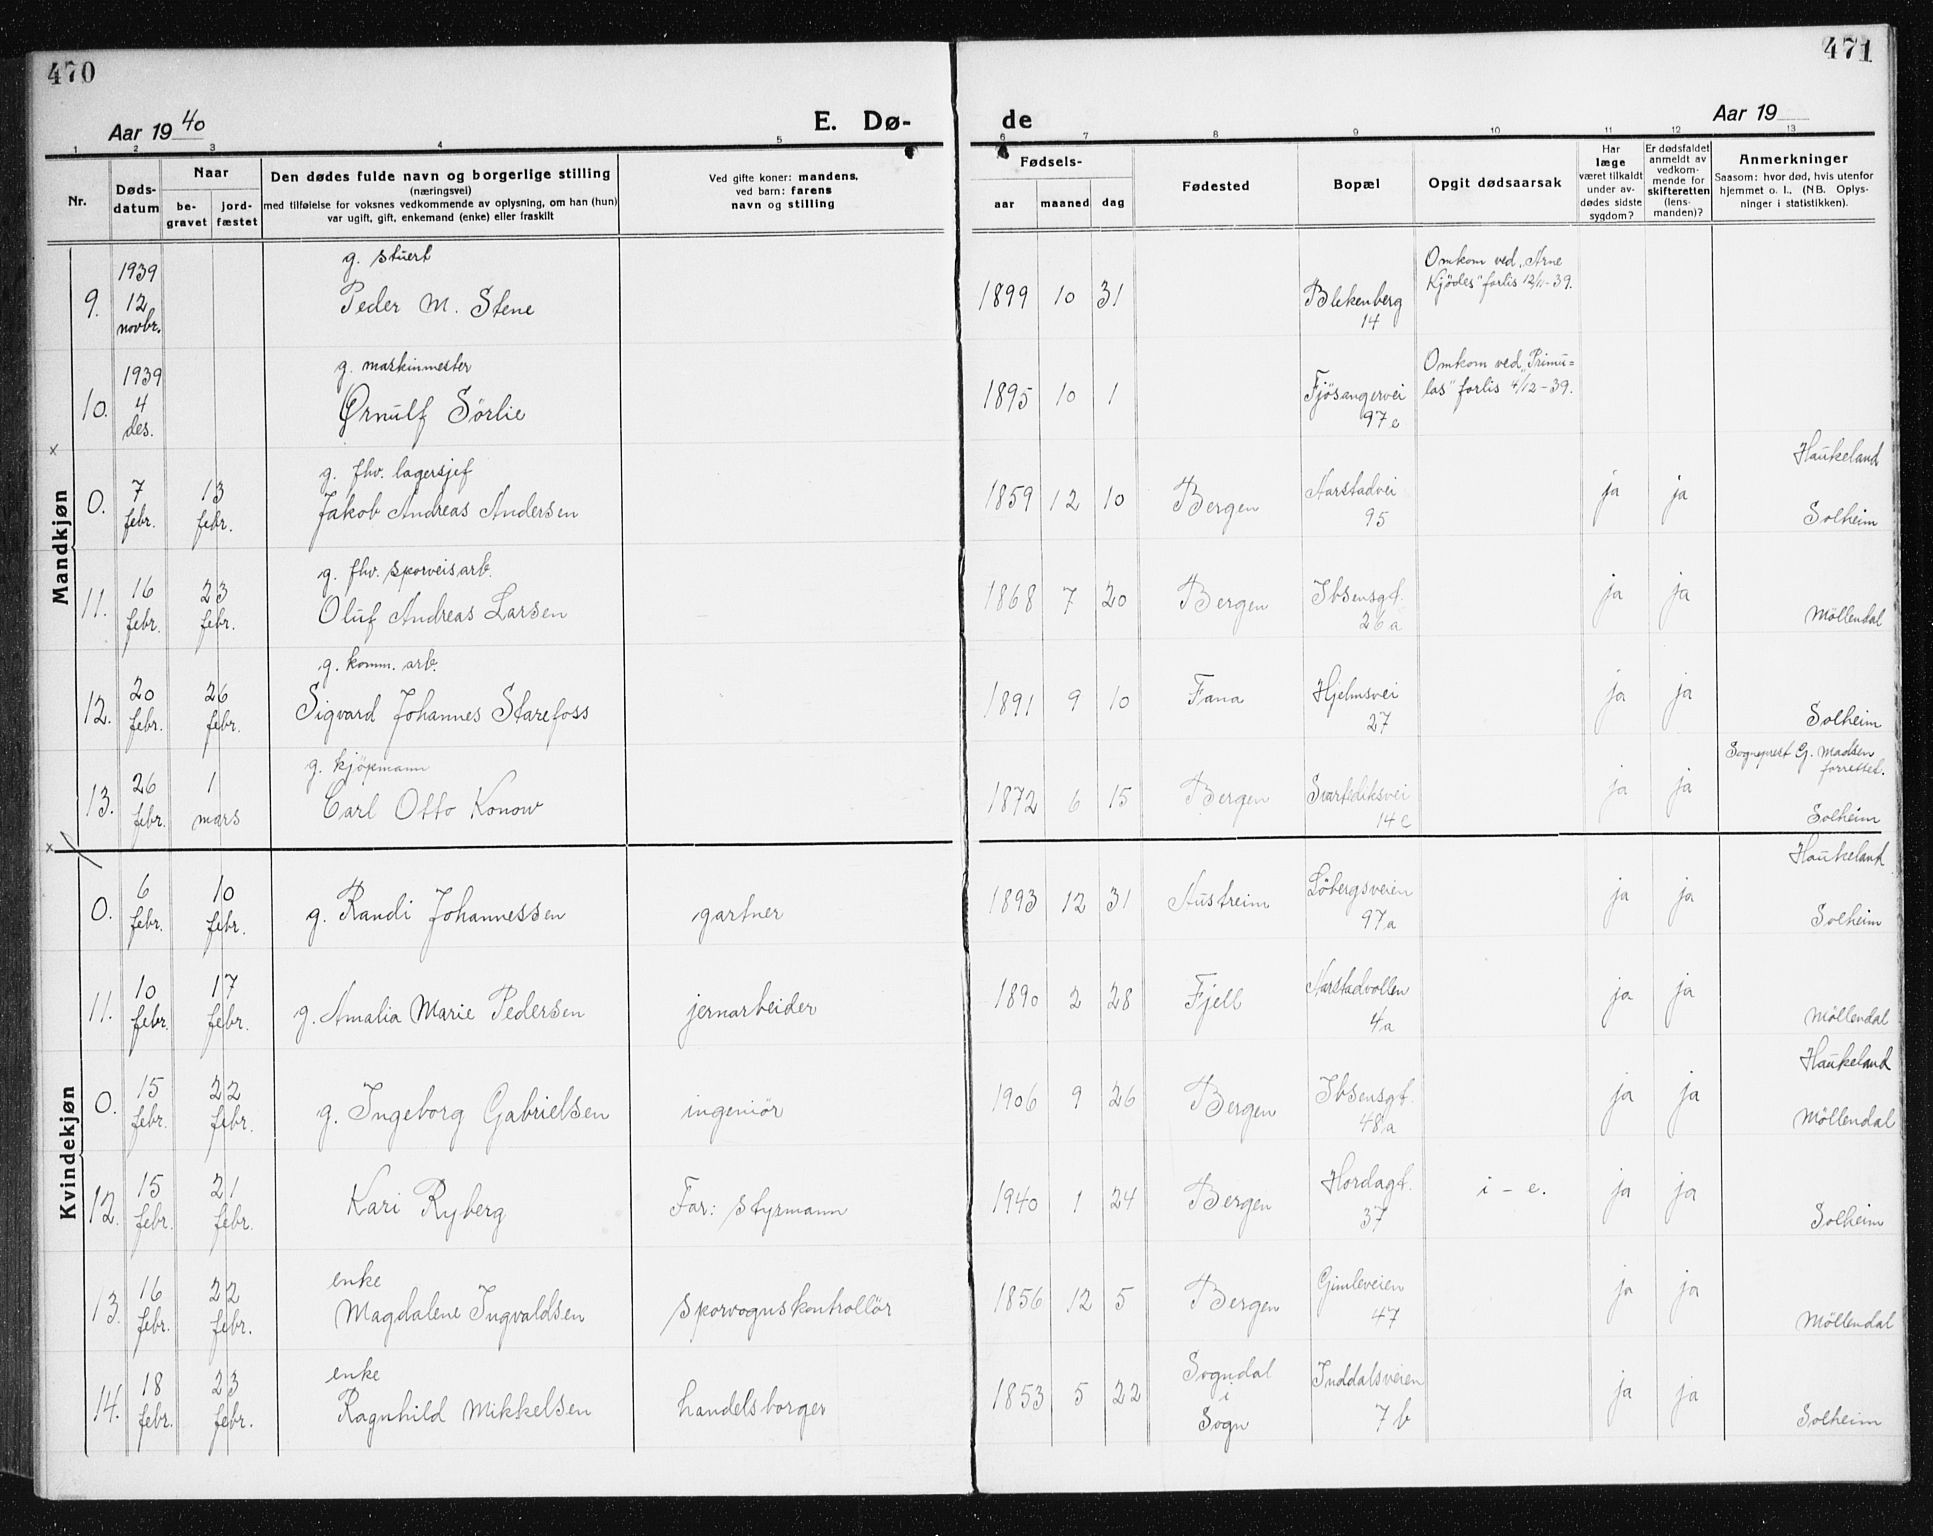 470
471
Aar 1940
E. Dø-
de
Aar 19
1 2 3 4 5 6 7 8 9 10 11 12 13
Nr.
Døds-
datum
Naar
be-
gravet
jord-
fæstet
Den dødes fulde navn og borgerlige stilling
(næringsvei)
med tilføielse for voksnes vedkommende av oplysning, om han (hun)
var ugift, gift, enkemand (enke) eller fraskilt
Ved gifte koner: mandens,
ved barn: farens
navn og stilling
Fødsels-
aar maaned dag
Fødested
Bopæl
Opgit dødsaarsak
Har
læge
været tilkaldt
under av-
dødes sidste
sygdom?
Er dødsfaldet
anmeldt av
vedkom-
mende for
skifteretten
(lens-
manden)?
Anmerkninger
Saasom: hvor død, hvis utenfor
hjemmet o. l., (NB. Oplys-
ninger i statistikken).
Mandkjøn
9.
1939
12
novbr.
g. stuert
Peder M. Stene
1899 10 31
Blekenberg
14
Omkom ved „Arne
Kjödes" forlis 12/11-39.
10.
1939
4
des.
g. maskinmester
Ørnulf Sörlie
1895 10 1
Fjösangervei
97e
Omkom ved „Primu-
las" forlis 4/12-39.
x
0.
7
febr.
13
febr.
g. fhv. lagersjef
Jakob Andreas Andersen
1859 12 10
Bergen
Aarstadvei
95
ja ja
Haukeland
Solheim
11.
16
febr.
23
febr.
g. fhv. sporveisarb.
Oluf Andreas Larsen
1868 7 20
Bergen
Ibsensgt.
26a
ja ja
Möllendal
12.
20
febr.
26
febr.
g. komm. arb.
Sigvard Johannes Starefoss
1891 9 10
Fana
Hjelmsvei
27
ja ja
Solheim
13.
26
febr.
1
mars
g. kjöpmann
Carl Otto Konow
1872 6 15
Bergen
Svartediksvei
14c
ja ja
Sogneprest G. Madsen
forrettet.
Solheim
Kvindekjøn
x
0.
6
febr.
10
febr.
g. Randi Johannessen
gartner
1893 12 31
Austreim
Löbergsveien
97a
ja ja
Haukeland
Solheim
11.
10
febr.
17
febr.
g. Amalia Marie Pedersen
jernarbeider
1890 2 28
Fjell
Aarstadvollen
4a
ja ja
Möllendal
0.
15
febr.
22
febr.
g. Ingeborg Gabrielsen
ingeniör
1906 9 26
Bergen
Ibsensgt.
48a
ja ja
Haukeland
Möllendal
12.
15
febr.
21
febr.
Kari Ryberg
Far: styrmann
1940 1 24
Bergen
Hordagt.
37
i - e.
ja ja
Solheim
13.
16
febr.
22
febr.
enke
Magdalene Ingvaldsen
sporvognskontrollör
1856 12 5
Bergen
Gimleveien
47
ja ja
Möllendal
14.
18
febr.
23
febr.
enke
Ragnhild Mikkelsen
handelsborger
1853 5 22
Sogndal
i
Sogn
Inddalsveien
7b
ja ja
Solheim